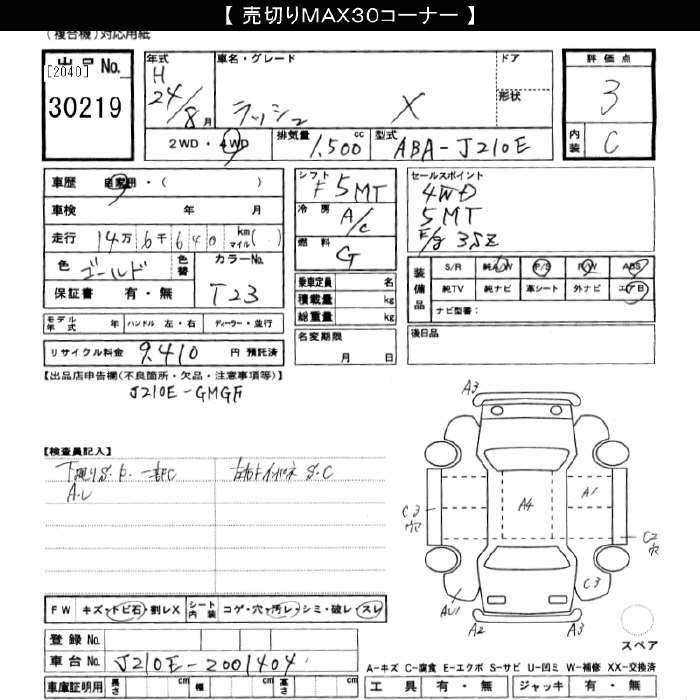 【 売切りMAX30コーナー 】
(複合機)対応用紙
出品No.
[2040]
30219
年式
H
24/8 月
車名・グレード
ラッシュ X
ドア
形状
評価点
3
内装
C
2WD・4WD
排気量
1,500 cc
型式
ABA-J210E
車歴 自家用・( )
車検 年 月
走行 14万6千640 km マイル( )
色 ゴールド
色替
カラーNo.
T23
保証書 有・無
シフト
F 5MT
冷房
A/C
燃料
G
乗車定員 名
積載量 kg
総重量 kg
セールスポイント
4WD
5MT
E/g 3SZ
装備品
S/R 純A/W P/S P/W ABS
純TV 純ナビ 革シート 外ナビ エアB
ナビ型番:
モデル年式 年 ハンドル 左・右 ディーラー・並行
リサイクル料金 9,410 円 預託済
名変期限
月 日
後日品
【出品店申告欄(不良箇所・欠品・注意事項等)】
J210E-GMGF
【検査員記入】
下廻りS.P. 一部C
A.U
S.C
A3
C3
穴
A4
A1
C2
穴
C3
AU1
A2
A3
スペア
FW キズ・トビ石・割レX
シート内装 コゲ・穴・汚レ・シミ・破レ・スレ
登録No.
車台No. J210E-2001404
車庫証明用 長さ cm 幅 cm 高さ cm
A-キズ C-腐食 E-エクボ S-サビ U-凹ミ W-補修 XX-交換済
工具 有・無 ジャッキ 有・無